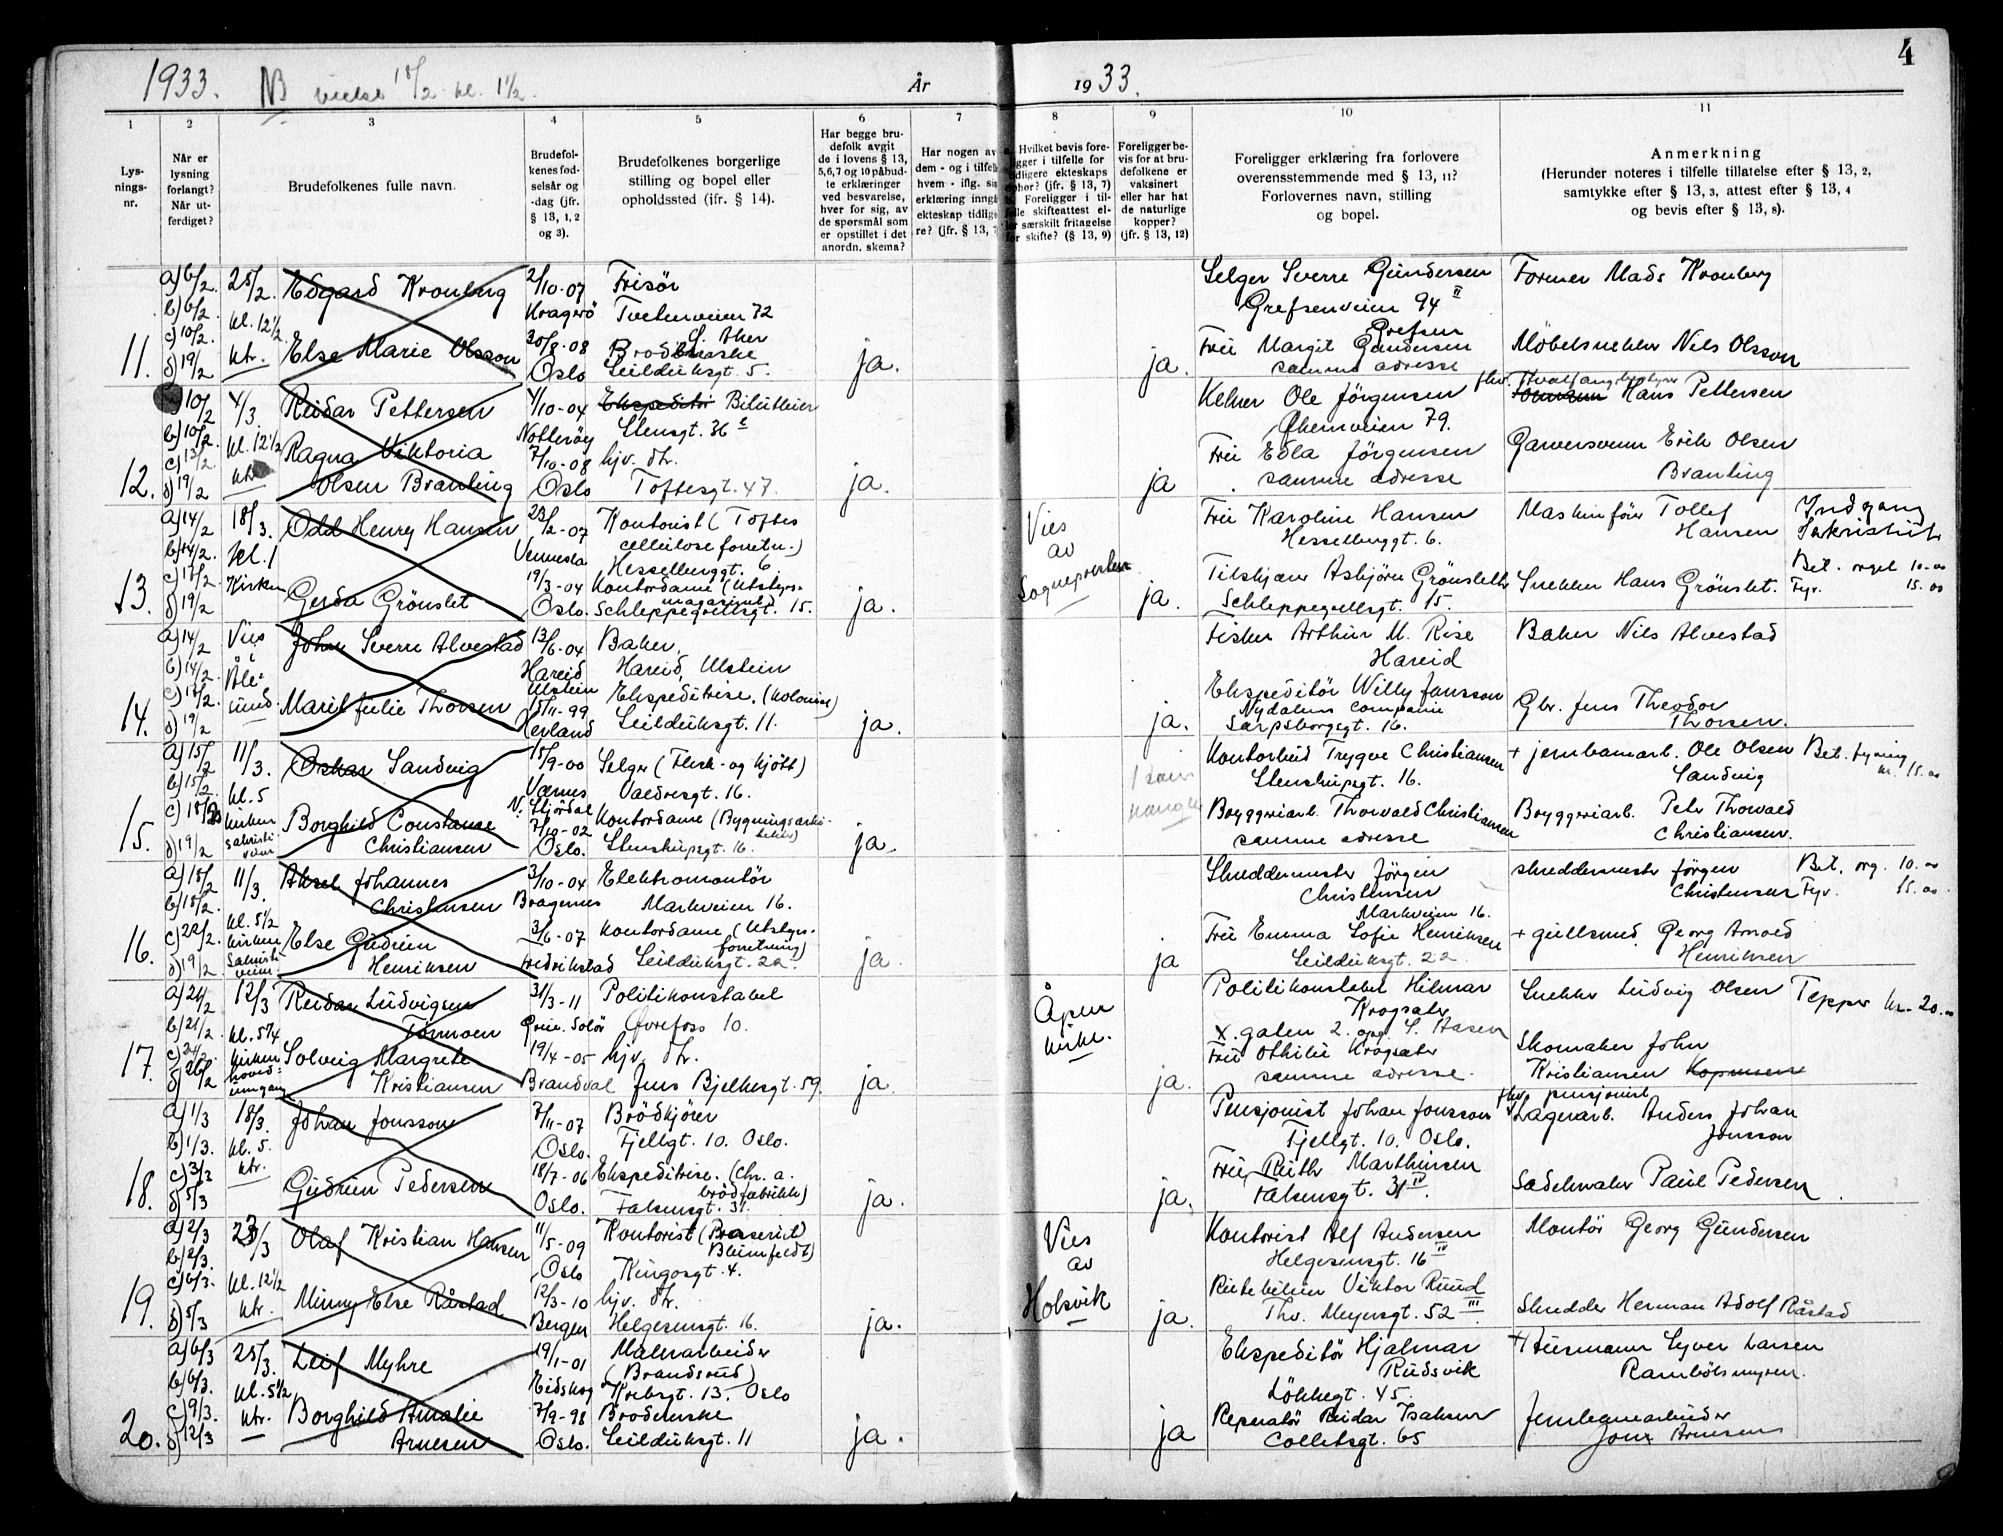 4
1933. NB vielse 18/2 kl. 1½.
År 1933.
1 2 3 4 5 6 7 8 9 10 11
Lys-
nings-
nr.
Når er
lysning
forlangt?
Når ut-
ferdiget?
Brudefolkenes fulle navn.
Brudefol-
kenes fød-
selsår og
-dag (jfr.
§ 13, 1, 2
og 3).
Brudefolkenes borgerlige
stilling og bopel eller
opholdssted (jfr. § 14).
Har begge bru-
defolk avgit
de i lovens § 13,
5,6,7 og 10 påbud-
te erklæringer
ved besvarelse,
hver for sig, av
de spørsmål som
er opstillet i det
anordn. skema?
Har nogen av
dem - og i tilfel
hvem - iflg. si
erklæring inng
ekteskap tidlig
re? (jfr. § 13, 7
Hvilket bevis fore-
gger i tilfelle for
idligere ekteskaps
phør? (jfr. § 13, 7)
Foreligger i til-
elle skifteattest el-
r særskilt fritagelse
r skifte? (§ 13, 9)
Foreligger be-
vis for at bru-
defolkene er
vaksinert
eller har hat
de naturlige
kopper?
(jfr. § 13, 12)
Foreligger erklæring fra forlovere
overensstemmende med § 13, 11?
Forlovernes navn, stilling
og bopel.
Anmerkning
(Herunder noteres i tilfelle tillatelse efter § 13, 2,
samtykke efter § 13, 3, attest efter § 13, 4
og bevis efter § 13, 8).
11.
a) 6/2. b) 6/2 c) 10/2 d) 19/2
25/2. kl. 12½. ktr.
Edgard Kronberg
2/10-07 Kragerö
Frisör
Tvetenveien 72
Ö. Aker
Else Marie Olsson
30/8-08 Oslo
Seilduksgt. 5.
ja.
ja.
Selger Sverre Gundersen
Grefsenveien 94 II
Grefsen
Frü Margit Gundersen
samme adresse
Former Mads Kronberg
Möbelsnekker Nils Olsson
12.
10/2 b) 10/2. c) 13/2. d) 19/2
4/3 kl. 12½ ktr
Reidar Pettersen
4/10-04 Nötteröy
Ekspeditör Bilutleier
Stensgt. 36 c
Ragna Viktoria
Olsen Branting
7/10-08 Oslo
hjv. dtr.
Toftesgt. 47.
ja.
ja
Kelner Ole Jörgensen
Ökernveien 79.
Frü Edla Jörgensen
samme adresse
fhv. Hvalfangstbestyrer
Hans Pettersen
Garversvenn Erik Olsen
Branting
13.
a) 14/2 b) 14/2. c) 17/2. d) 19/2
18/3. kl. 1 Kirken
Odd Henry Hansen
23/2-07 Vennesla
Kontorist (Toftes
cellulose forretn.)
Hesselberggt. 6
Gerda Grönslet
19/3-04 Oslo.
Kontordame (Utstyrs-
magasinet)
Schleppegrellsgt. 15.
ja.
Vies
av
Sognepresten
ja.
Frü Karoline Hansen
Hesselberggt. 6.
Tilskjærer Asbjörn Grönslett
Schleppegrellsgt. 15.
Maskinför Tollef
Hansen
Snekker Hans Grönslet.
Indgang
Sakristiet
Bet. orgel 10.00
Fyr. 15.00
14.
a) 14/2 b) 14/2. c) 17/2. d) 19/2
Vies
i
Åle-
sund.
Johan Sverre Alvestad
13/6-04 Hareid
Ulstein
Baker,
Hareid, Ulstein
Marit Julie Thorsen
15/11-99
Ekspeditrise. (Kolonial)
Seilduksgt. 11.
ja.
ja.
Fisker Arthur M. Rise
Hareid
Ekspeditör Willy Jansson
Nydalens Compani
Sarpsborggt. 16.
Baker Nils Alvestad
Gbr. Jens Theodor
Thorsen.
15.
a) 15/2 b) 15/2 c) 18/2 d) 19/2
11/3. kl. 5 kirken
Oskar Sandvig
15/9-00 Værnes
N. Stjördal
Selger (Flesk- og kjött)
Valdresgt. 16.
Borghild Constanse
Christiansen
7/10-02 Oslo.
Kontordame (Bygningsarki-
tekter)
Stenstrupsgt. 16.
ja.
Kontorbud Trygve Christiansen
Stenstrupsgt. 16.
Bryggeriarb. Thorvald Christiansen
samme adresse
+ jernbanearb. Ole Olsen
Sandvig
Bryggeriarb. Petr Thorvald
Christiansen.
Bet. fyrning
kr. 15.00
16.
a) 18/2 b) 18/2. c) 22/2. d) 19/2
11/3. kl. 5½ kirken
Aksel Johannes
Christensen
3/10-04 Bragernes
Elektromontör
Markveien 16.
Else Gudrun
Henriksen
3/6-07 Fredrikstad
Kontordame (Utstyrs-
forretning)
Seilduksgt. 22.
ja.
ja
Skreddermester Jörgen
Christensen
Markveien 16.
Frü Emma Sofie Henriksen
Seilduksgt. 22.
skreddermester Jörgen
Christensen
+ gullsmed. Georg Arvoed
Henriksen
Bet. org. 10.00
Fyr. 15.00
17.
a) 21/2 b) 21/2. c) 24/2. d) 26/2
12/3 kl. 5¾ kirken
hoved-
inngang
Reidar Ludvigsen
Tormoen
31/3-11 Grue. Solör
Politikonstabel
Övrefoss 10.
Solveig Margrete
Kristiansen
19/4-05 Brandval
hjv. dtr.
Jens Bjelkesgt. 59.
ja.
Åpen
kirke.
ja.
Politikonstabel Hilmar
Krogsæter
Frü Othilie Krogsæter
samme adresse.
Snekker Ludvig Olsen
Skomaker John
Kristiansen
Tepper kr. 20.00
18.
a) 1/3 b) 1/3. c) 3/3 d) 5/3
18/3. kl. 5. ktr.
Johan Jonsson
7/11-07 Oslo.
Brödkjörer
Fjellgt. 10. Oslo.
Gudrun Pedersen
18/7-06 Oslo.
Ekspeditrise. (Chr. a.
brödfabrikk)
Falsensgt. 31.
ja.
ja.
Pensjonist Johan Jonsson
Fjellgt. 10. Oslo.
Frü Ruth Marthinsen
Falsensgt. 31 IV.
fhv. pensjonist
Lagerarb. Anders Johan
Jonsson
Sadelmaker Paul Pedersen
19.
a) 2/3 b) 2/3. c) 6/3. d) 5/3
23/3 kl. 12½ ktr.
Olaf Kristian Hansen
11/5-09 Oslo
Kontorist (
Blumfeldt)
Kingosgt. 4.
Minny Else Råstad
12/3-10 Bergen
hjv. dtr.
Helgesensgt. 16.
ja.
Vies
av
Holsvik
ja.
Kontorist Alf Andersen
Helgesensgt. 16 IV
Rutebileier Viktor Ruud
Thv. Meyersgt. 52 III.
Montör Georg Gundersen
Skredder Herman Adolf Råstad
20.
a) 6/3 b) 6/3. c) 9/3. d) 12/3
25/3. kl. 5½ ktr.
Leif Myhre
19/1-01 Eidskog
Malerarbeider
(Brandsrud)
Krebsgt. 13. Oslo
Borghild Amalie
Arnesen
7/9-98 Oslo.
Broderske
Seilduksgt. 11
ja.
ja
Ekspeditör Hjalmar
Rudsvik
Lökkegt. 45.
Reperatör Reidar Isaksen
Colletsgt. 65
+ Husmann Syver Larsen
Jernbanearbeider
Arnesen